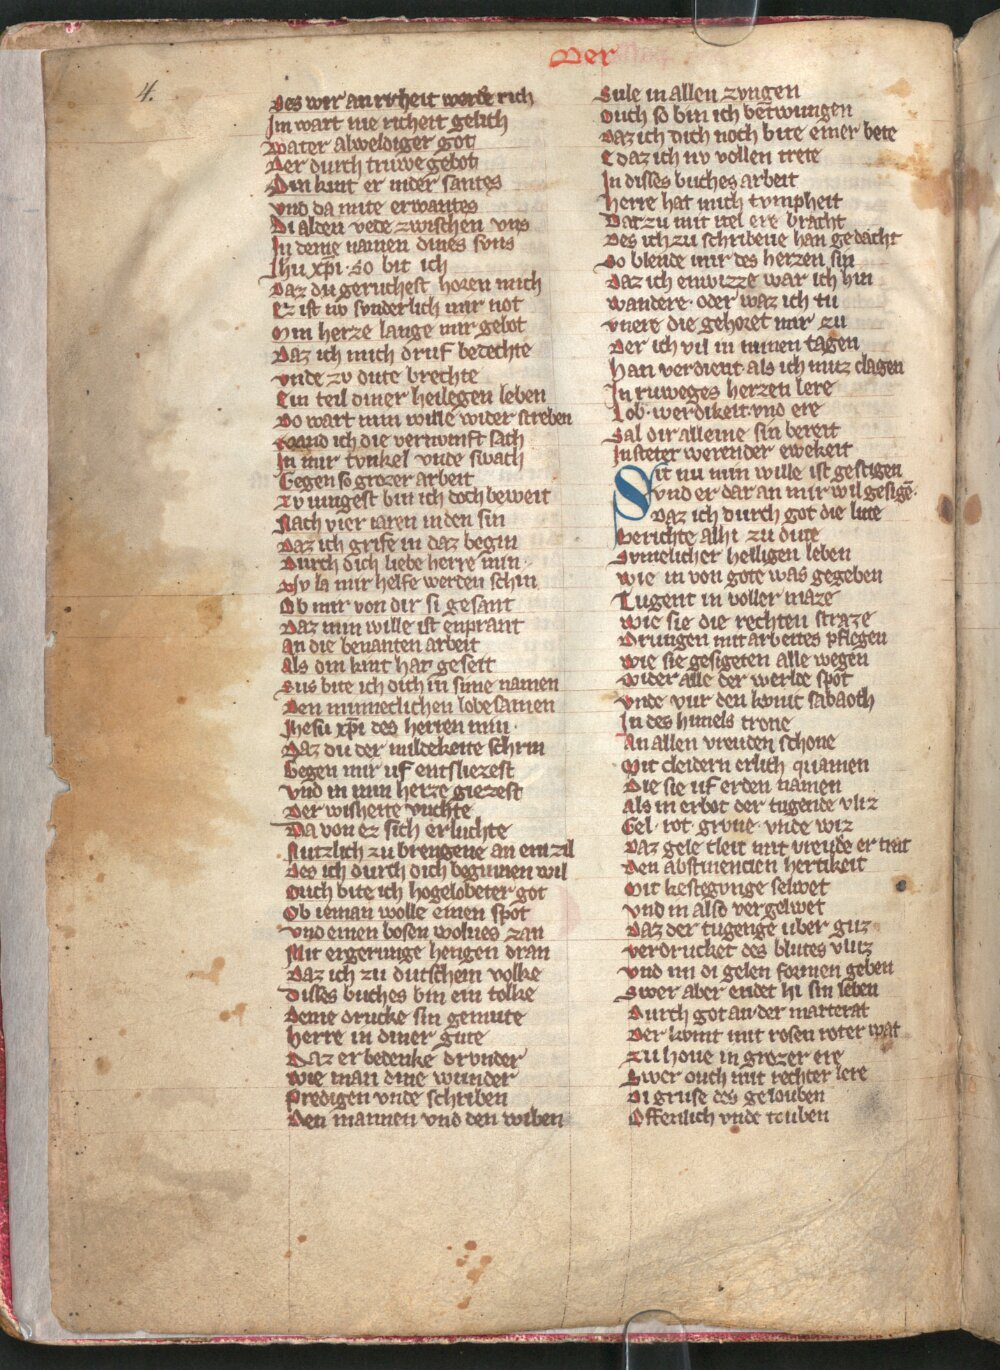 Der
4.
Des wir an richeit worde rich
Im wart nie richeit gelich
Vater alweldiger got
Der durch truwe gebot
Din kint er nider santes
vnd da mite erwantes
Di alden vede zwischen vns
In deme namen dines suns
Ihu xp̄i so bit ich
Daz du geruchest horen mich
Ez ist nv sunderlich mir not
Min herze lange mir gebot
Daz ich mich druf bedechte
vnde zv dute brechte
Ein teil diner heilegen leben
Do wart min wille wider streben
wand ich die vernunft sach
In mir tvnkel vnde swach
Gegen so grozer arbeit
Zv iungest bin ich doch beweit
Nach vier iaren in den sin
Daz ich grife in daz begin
Durch dich liebe herre min
Nv la mir helfe werden schin
Ob mir von dir si gesant
Daz min wille ist enprant
An die benanten arbeit
Als din kint hat geseit
Sus bite ich dich in sime namen
Den minneclichen lobesamen
Jhesu xp̄i des herren min
Daz du der mildekeite schrin
Gegen mir uf entsliezest
vnd in min herze giezest
Der wisheite vuchte
Da von ez sich erluchte
Nutzlich zu brengene an ein zil
Des ich durch dich beginnen wil
Ouch bite ich hogelobeter got
Ob ieman wolle einen spot
vnd einen bosen wolues zan
Mit ergerunge hengen dran
Daz ich zu dutschem volke
Disses buches bin ein tolke
Deme drucke sin gemute
Herre in diner gute
Daz er bedenke drvnder
wie man dine wunder
Predigen vnde schriben
Den mannen vnd den wiben
Sule in allen zvngen
Ouch so bin ich betwungen
Daz ich dich noch bite einer bete
E daz ich nv vollen trete
In disses buches arbeit
Herre hat mich tvmpheit
Dar zu mit itel ere bracht
Des ich zu schribene han gedacht
So blende mir des herzen sin
Daz ich enwizze war ich hin
wandere oder waz ich tu
vnere die gehoret mir zu
Der ich vil in minen tagen
Han verdient als ich muz clagen
In ruweges herzen lere
Lob werdikeit vnd ere
Sal dir alleine sin bereit
In steter werender ewekeit
Sit nu min wille ist gestigen
vnd er dar an mir wil gesigē
Daz ich durch got die lute
Berichte alhi zu dute
Svmelicher heiligen leben
wie in von gote was gegeben
Tugent in voller maze
wie sie die rechten straze
Drungen mit arbeites pflegen
wie sie gesigeten alle wegen
wider alle der werlde spot
vnde vur den kvnic sabaoth
In des himels trone
An allen vreuden schone
Mit cleidern erlich quamen
Die sie uf erden namen
Als in erbot der tugende vliz
Gel rot grvne vnde wiz
Daz gele cleit mit vreude er treit
Den abstinencien hertikeit
Mit kestegunge selwet
vnd in also vergelwet
Daz der tugende uber guz
verdrucket des blutes vluz
vnd im di gelen formen geben
Swer aber endet hi sin leben
Durch got an der marterat
Der kvmt mit rosen roter wat
Zu houe in grozer ere
Swer ouch mit rechter lere
Di gruse des gelouben
Offenlich vnde touben